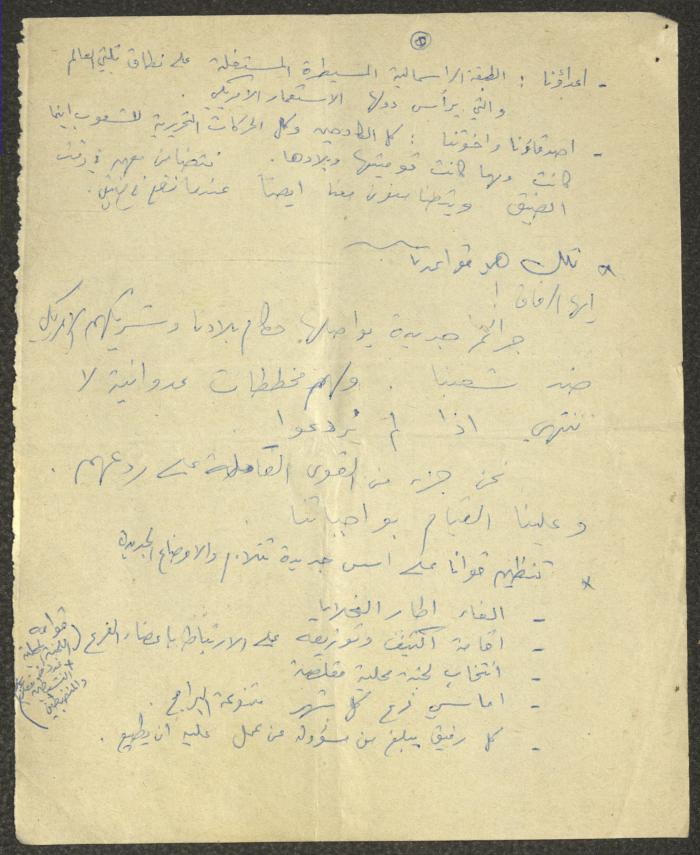 - اعداؤنا : الطبقة الراسمالية المسيطرة المستغلة على نطاق ثلثي العالم
والتي يرأس دولها الاستعمار الامريكي .
- اصدقاؤنا واخوتنا : كل الكادحين وكل الحركات التحررية للشعوب اينما
كانت ومهما كانت قوميتها وبلادها . نتضامن معهم في وقت
الضيق ويتضامنون معنا ايضاً عندما نقع في ضيق .
* تلك هي قواعدنا
ايها الرفاق !
جرائم جديدة يواصلها حكام بلادنا وشريكهم الامريكي
ضد شعبنا . ولهم مخططات عدوانية لا
تنتهي اذا لم يُردعوا .
نحن جزء من القوى العاملة على ردعهم .
وعلينا القيام بواجباتنا
* تنظيم قوانا على اسس جديدة تتلائم والاوضاع الجديدة
- الغاء اطار الخلايا
- اقامة الكتيف وتوزيعه على الارتباط باعضاء الفرع
- انتخاب لجنة محلية مقلصة
- اماسي فرع كل شهر متنوعة البرامج .
- كل رفيق يبلغ من مسؤوله عن عمل عليه ان يطيع .
قواعد
اللجنة المحلية